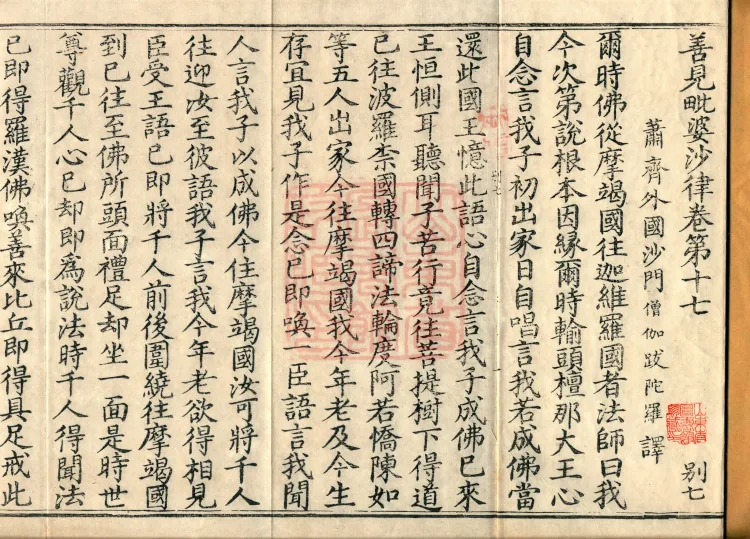 善見毗婆沙律卷第十七
別七
蕭齊外國沙門僧伽跋陀羅譯
爾時佛從摩竭國往迦維羅國者法師曰我
今次第說根本因緣爾時輸頭檀那大王心
自念言我子初出家日自唱言我若成佛當
還此國王憶此語心自念言我子成佛已來
王恒側耳聽聞子苦行竟往菩提樹下得道
已往波羅柰國轉四諦法輪度阿若憍陳如
等五人出家今往摩竭國我今年老及今生
存宜見我子作是念已即喚一臣語言我聞
人言我子以成佛今住摩竭國汝可將千人
往迎汝至彼語我子言我今年老欲得相見
臣受王語已即將千人前後圍繞往摩竭國
到已往至佛所頭面禮足却坐一面是時世
尊觀千人心已却即為說法時千人得聞法
已即得羅漢佛喚善來比丘即得具足戒此